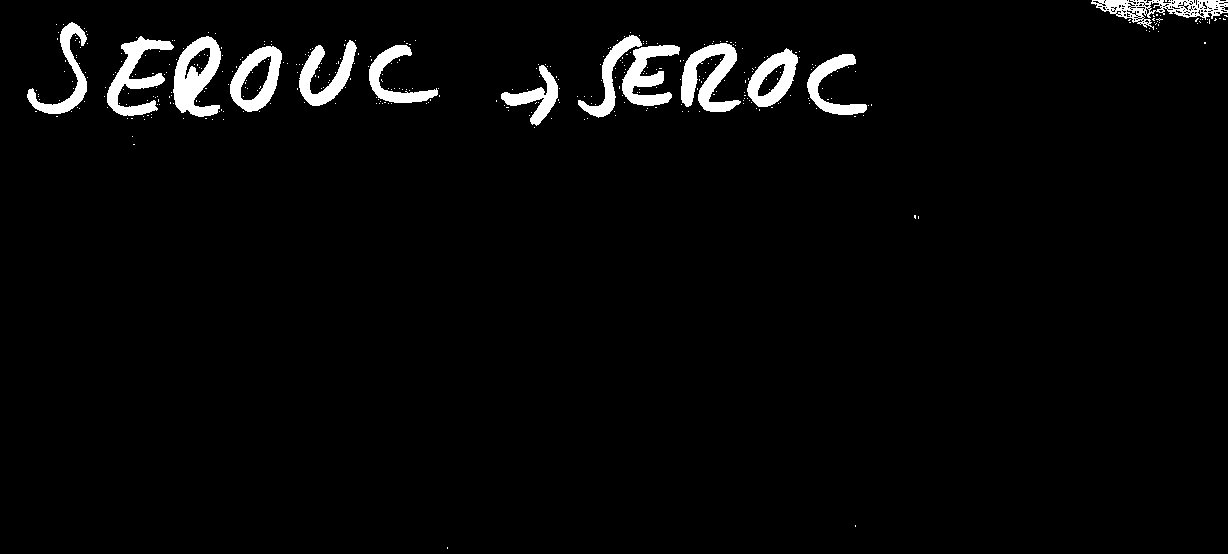 SEROUC → SEROC